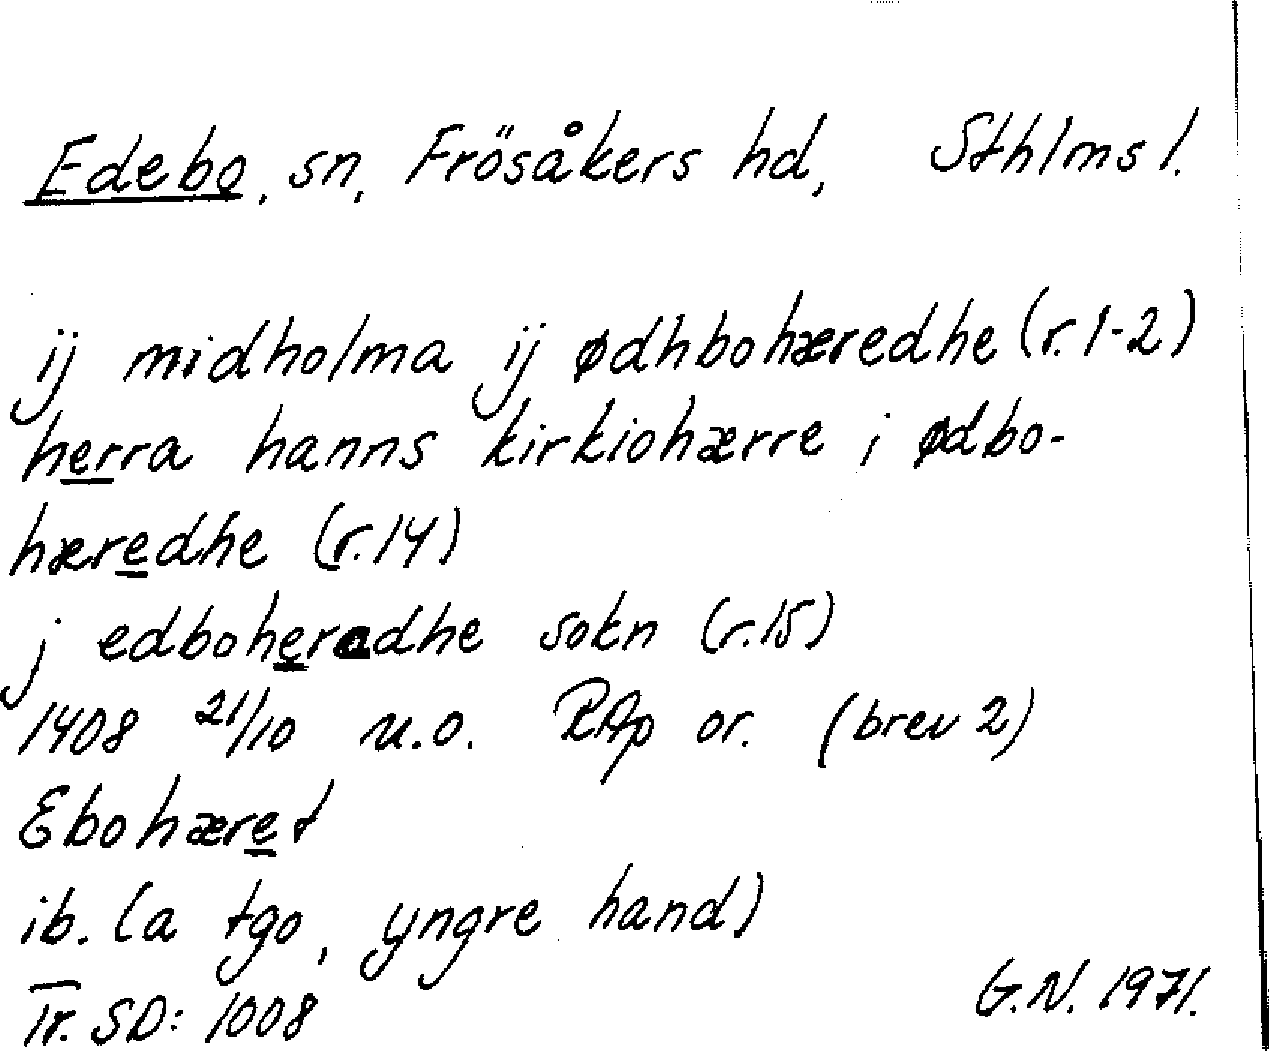 Edebo, sn, Frösåkers hd, Sthlms l.
ij midholma ij ødhbohæredhe (r. 1-2)
herra hanns kirkiohærre i ødbo-
hæredhe (r. 14)
j edboheradhe sokn (r. 15)
1408 21/10 u.o. RAp or. (brev 2)
Ebohæret
ib. (a tgo, yngre hand)
Tr. SD: 1008
G.N. 1971.